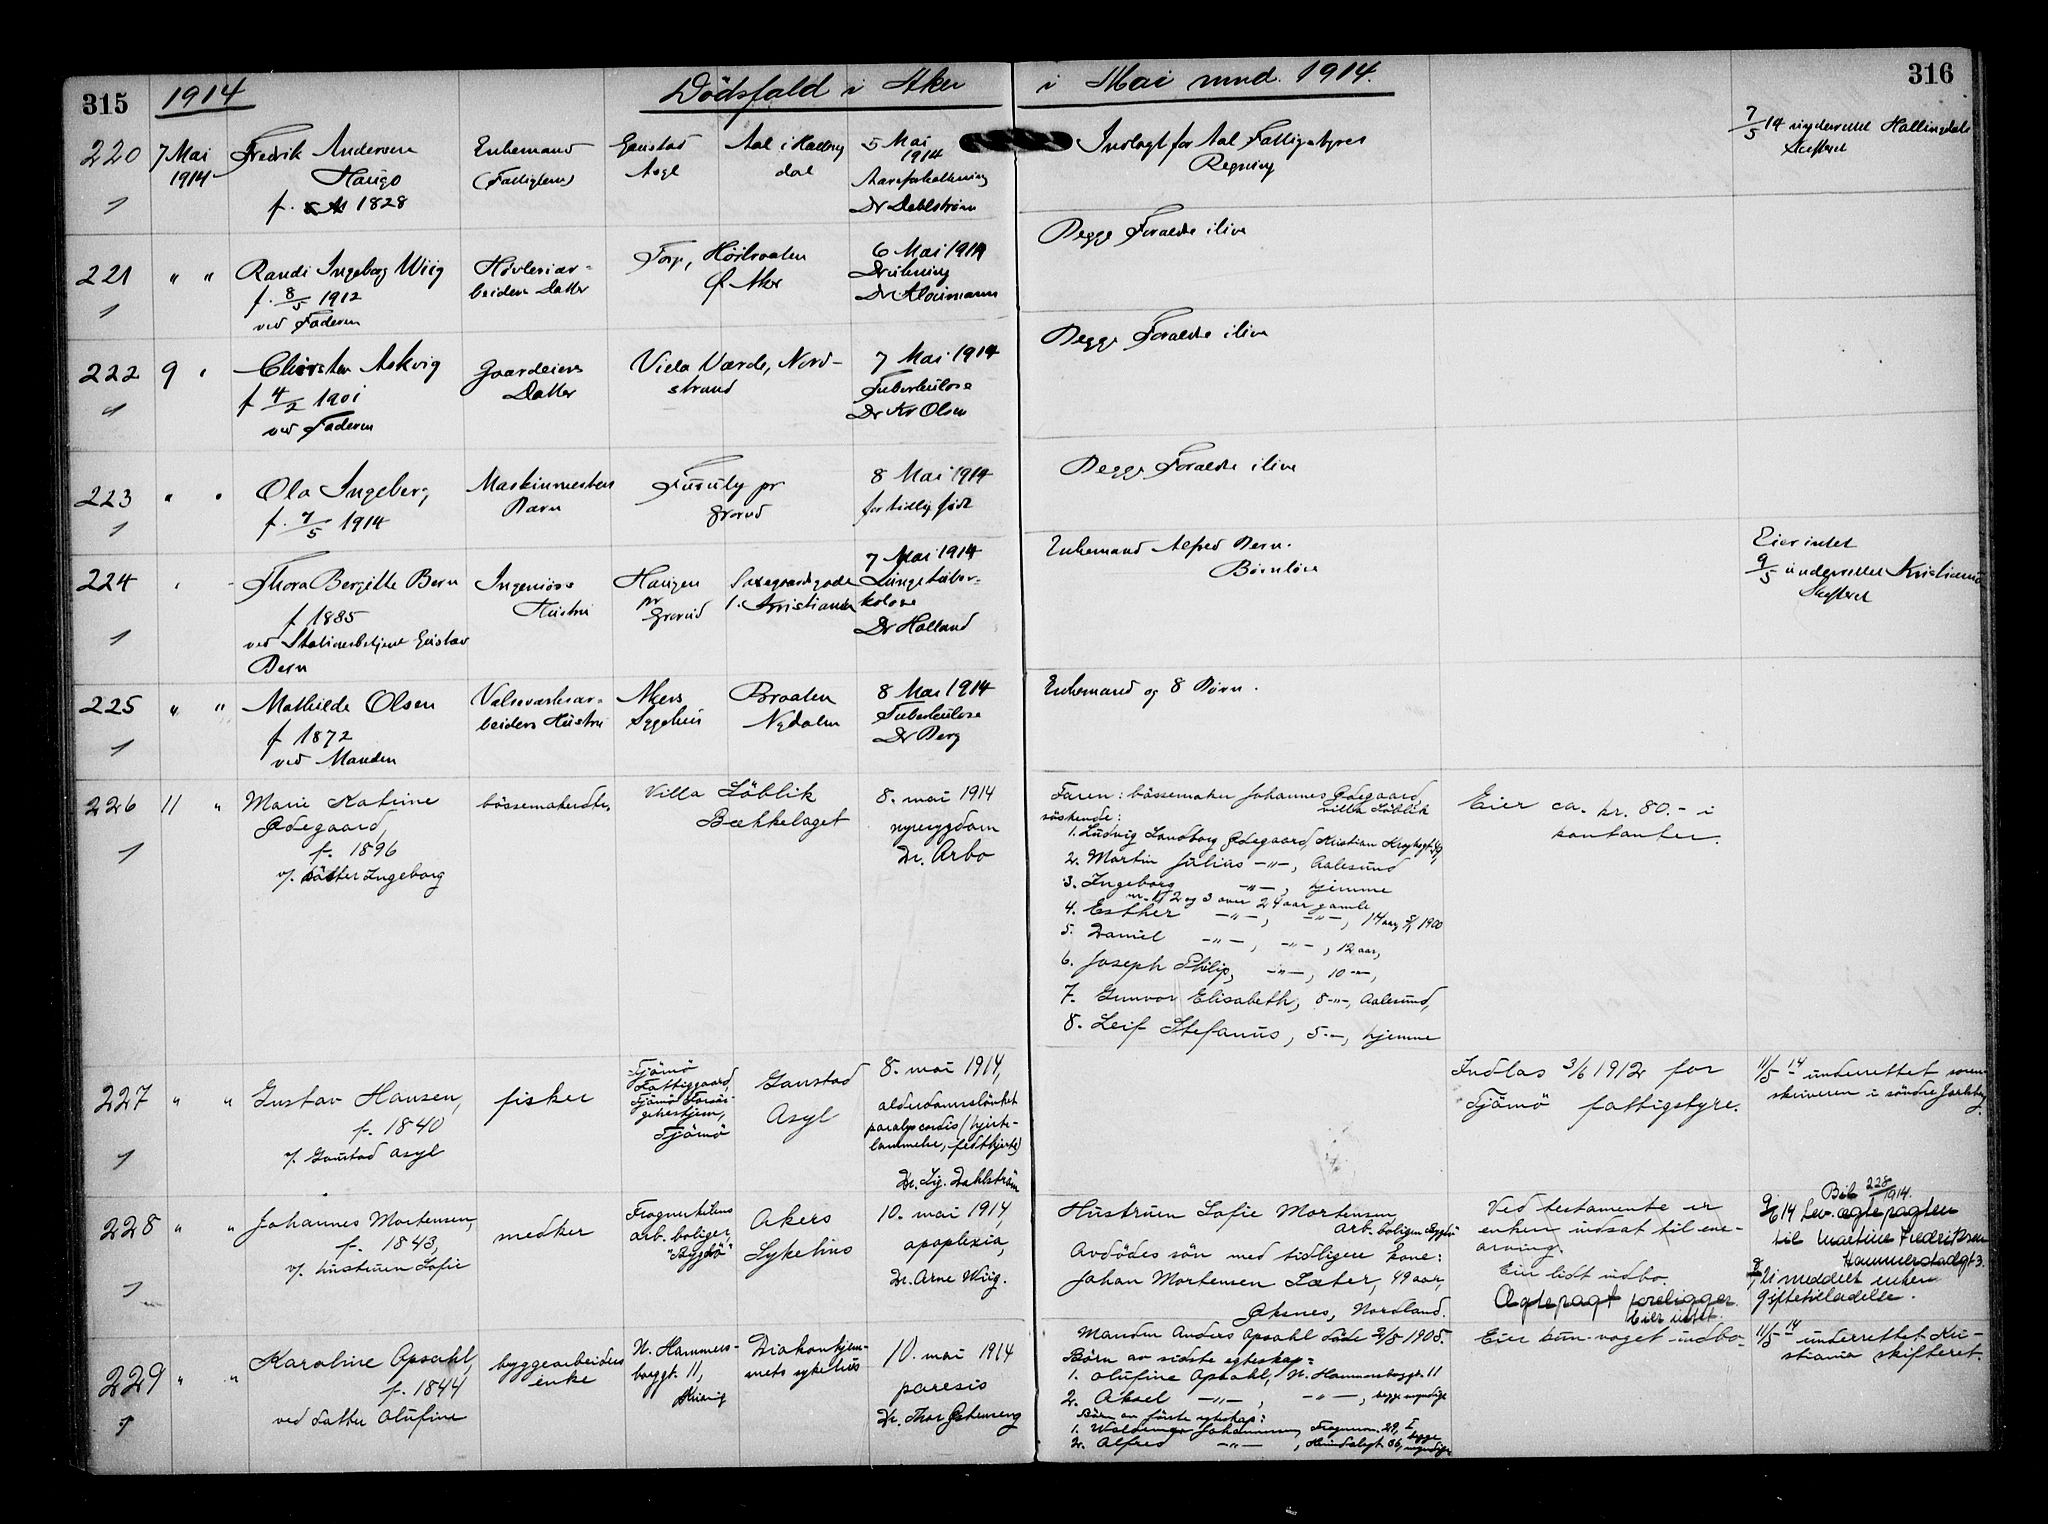 315 1914 Dödsfald i Aker i Mai mnd. 1914. 316
220 7 Mai 1914
Fredrik Andersen
Haugo
f. 1828
1
Enkemand
(Fattiglem)
Gaustad
Asyl
Aal i Halling
dal
5 Mai
1914
Aareforkalkning
Dr Dahlström
Indlagt for Aal Fattigstyres
Regning
7/5 14 underrettet Hallingdals
Skifteret
221 " "
Randi Ingeborg Wiig
f. 8/5 1912
ved Faderen
1
Høvleriar-
beiders Datter
Høibraaten
Aker
6 Mai 1914
Drukning
Begge Foraldre ilive
222 9 "
Askvig
f 4/2 1901
ved Faderen
1
Gaardeiers
Datter
Villa Varde, Nord-
strand
7 Mai 1914
Tuberkulose
Dr Kr Olsen
Begge Foraldre ilive
223 " "
Ola Ingeberg
f. 7/5 1914
1
Maskinmesters
Barn
Furuly pr
Grorud
8 Mai 1914
for tidlig født
Begge Foraldre ilive
224 " "
Thora Bergitte Bern
f 1885
ved Stationsbetjent Gustav
Bern
1
Ingeniørs
Hustru
Haugen
pr
Grorud
Saxegaardsgade
1. Kristiania
7 Mai 1914
Lungetuber-
kolose
Dr Holland
Enkemand Alfred Bern.
Børnløse
Eier intet
9/5 underrettet Kristiania
Skifteret
225 " "
Mathilde Olsen
f 1872
ved Manden
1
Valseverksar-
beiders Hustru
Akers
Sygehus
Braaten
Nydalen
8 Mai 1914
Tuberkulose
Dr Berg
Enkemand og 8 Børn.
226 11 "
Marie Katrine
Ødegaard,
f. 1896
v/. søster Ingeborg
1
bössemakerdtr.
Villa Söblik
Bækkelaget
8. mai 1914
nyresygdom
Dr. Arbo
Faren: bössemaker Johannes Ødegaard,
villa Söblik
söskende:
1. Ludvig Sandborg Ødegaard, Kristian Kroghsgt. 49,
2. Martin Julius —"—, Aalesund
3. Ingeborg —"—, hjemme
nr. 1, 2 og 3 over 24 aar gamle
4. Esther —"—, —"—, 14 aar, 1900
5. Daniel —"—, —"—, 12 aar,
6. Joseph Philip, —"—, 10 —"—,
7. Gunvor Elisabeth, 8 —"—, Aalesund,
8. Leif Stefanus, 5 —"—, hjemme
Eier ca. kr. 80.- i
kontanter.
227 " "
Gustav Hansen,
f. 1840
v/. Gaustad asyl
1
fisker
Tjömö
Fattiggaard,
Tjömö Forsör-
gelseshjem,
Tjömö
Gaustad
Asyl
8. mai 1914,
alderdomsslövhet
paralys cordis (hjerte-
lammelse, fedthjerte)
Dr. Sig. Dahlström
Indlas 3/6 1912 for
Tjömö fattigstyre.
11/5 14 underrettet soren-
skriveren i söndre Jarlsberg
228 " "
Johannes Mortensen,
f. 1843,
v/. hustruen Sofie
1
medker
Frognerkilens
arb. boliger,
"Bygdö"
Akers
Sykehus
10. mai 1914,
apoplexia,
Dr. Arne Wiig.
Hustruen Sofie Mortensen,
arb. boligen Bygdö
Avdödes sön med tidligere kone:
Johan Mortensen Sæter, 49 aar,
Öksnes, Nordland.
Ved testamente er
enken indsat til ene-
arving.
Eier lidt indbo.
Ægtepagt foreligger.
Eier intet.
Bil 228/1914.
9/6 14 Lev. ægtepagten
til Martine Fredriksen
Hammerstadgt 3.
meddelt enken
giftetilladelse.
229 " "
Karoline Opsahl,
f. 1844
ved datter Olufine
1
byggearbeiders
enke
N. Hammers-
borggt. 11,
Kr.ania
Diakonhjem-
mets sykehus
10. mai 1914
paresis
Dr. Thor Østenseng
Manden Anders Opsahl döde 2/8 1905.
Börn av sidste egteskap:
1. Olufine Opsahl, N. Hammersborggt. 11
2. Aksel —"—, —"—, begge myndige
Börn av förste egteskap:
1. Waldemar Johannesen, Frognerv. 29, I,
2. Alfred —"—, 36, begge myndige
Eier kun noget indbo.
11/5 14 underrettet Kri-
stiania skifteret.